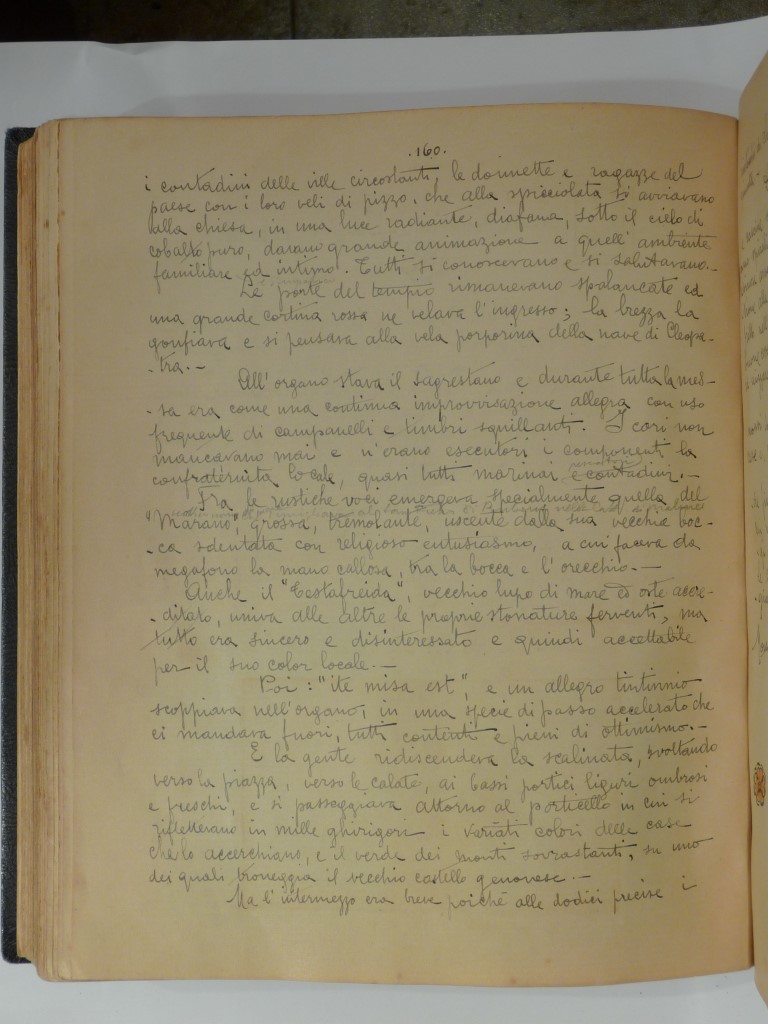 .160.
i contadini delle ville circostanti, le donnette e ragazze del
paese con i loro veli di pizzo, che alla spicciolata si avviavano
alla chiesa, in una luce radiante, diafana, sotto il cielo di
cobalto puro, davano grande animazione a quell'ambiente
familiare ed intimo. Tutti si conoscevano e si salutavano.-
Le porte del tempio rimanevano spalancate ed
una grande cortina rossa ne velava l'ingresso; la brezza la
gonfiava e si pensava alla vela porporina della nave di Cleopa-
-tra.-
All'organo stava il sagrestano e durante tutta la mes-
-sa era come una continua improvvisazione allegra con uso
frequente di campanelli e timbri squillanti. I cori non
mancavano mai e n'erano esecutori i componenti la
pescatori
confraternita locale, quasi tutti marinai e contadini.-
Fra le rustiche voci emergeva specialmente quella del
"Marano", grossa, tremolante, uscente dalla sua vecchia boc-
-ca sdentata con religioso entusiasmo, a cui faceva da
megafono la mano callosa, tra la bocca e l'orecchio.-
Anche il "Testafreida", vecchio lupo di mare ed oste accre-
-ditato, univa alle altre le proprie stonature ferventi, ma
tutto era sincero e disinteressato e quindi accettabile
per il suo color locale.-
Poi: "ite misa est", e un allegro tintinnio
scoppiava nell'organo, in una specie di passo accelerato che
ci mandava fuori, tutti contenti e pieni di ottimismo.-
E la gente ridiscendeva la scalinata, svoltando
verso la piazza, verso le calate, ai bassi portici liguri ombrosi
e freschi, e si passeggiava attorno al porticello in cui si
riflettevano in mille ghirigori i variati colori delle case
che lo accerchiano, e il verde dei monti sovrastanti, su uno
dei quali troneggia il vecchio castello genovese.-
Ma l'intermezzo era breve poiché alle dodici precise i